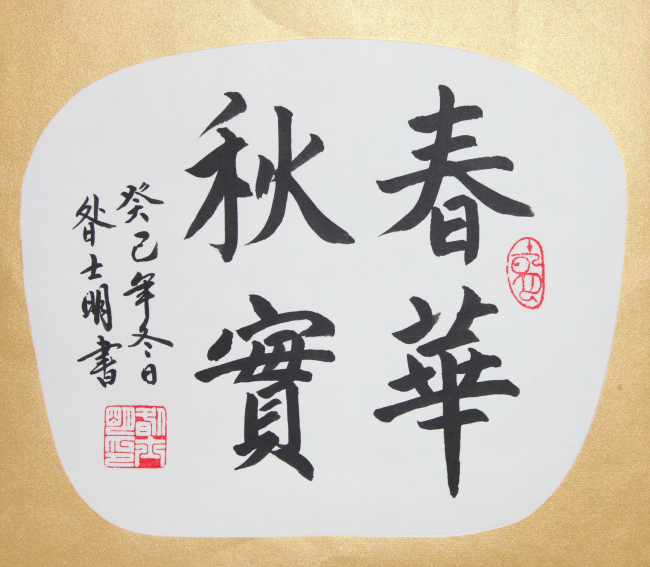 春華
秋實
癸巳年冬日
昝士明書